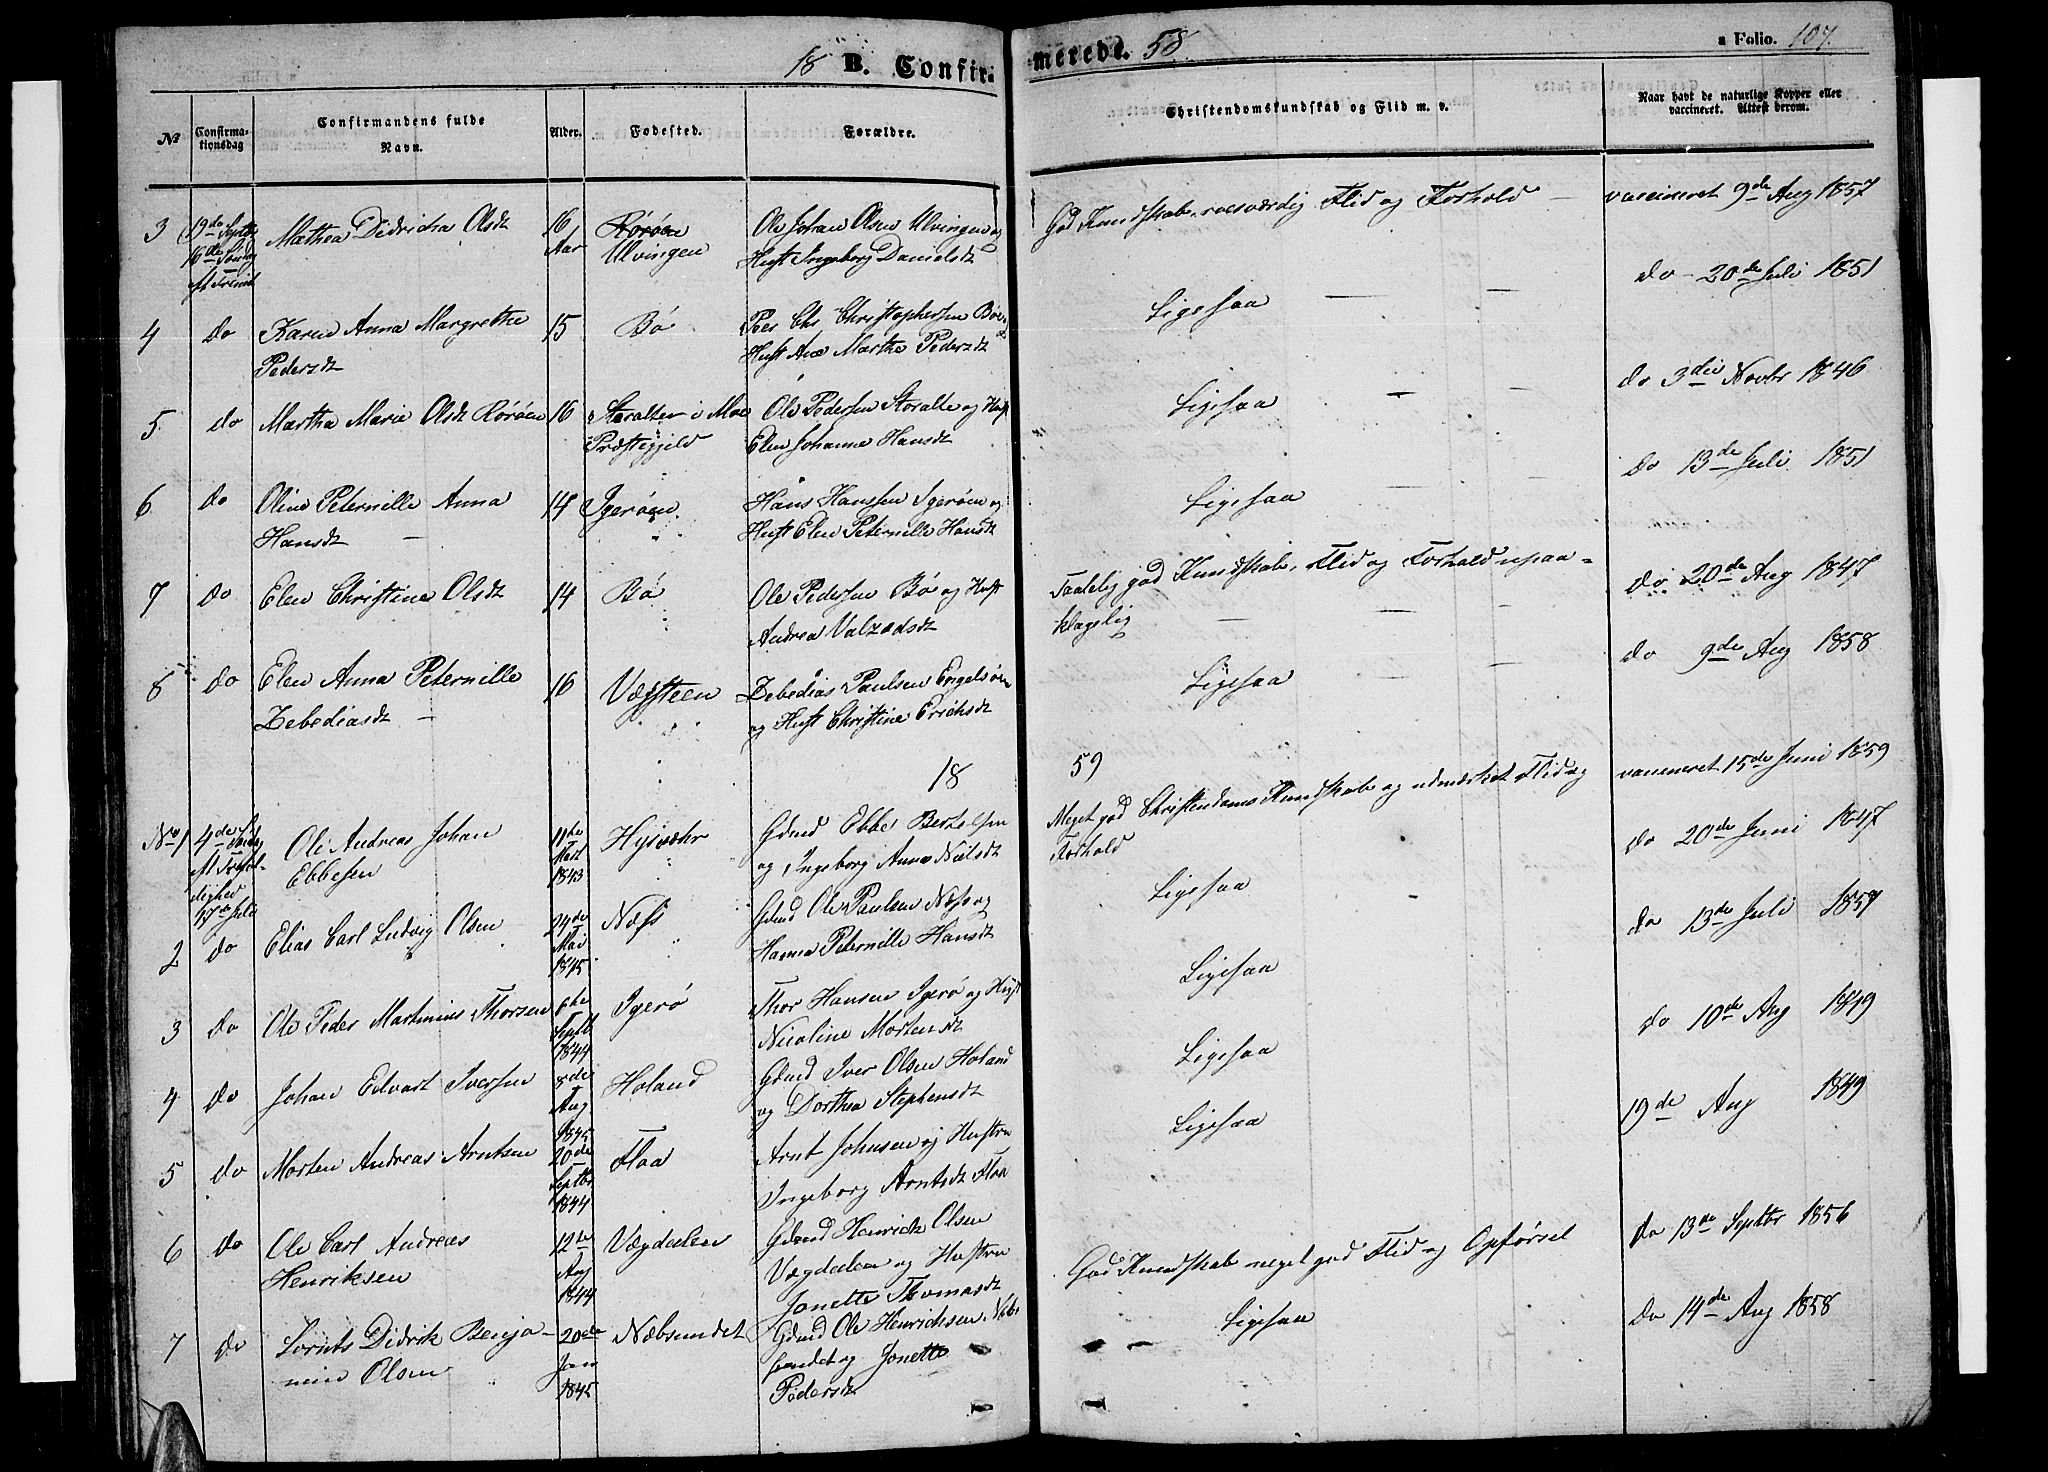 18 B. Confirmerede. 58
a Folio. 107.
No
Confirmationsdag
Confirmandens fulde Navn.
Alder.
Fødested.
Forældre.
Christendomskundskab og Flid m. v.
Naar havt de naturlige Kopper eller vaccineret. Attest derom.
3 19de Septbr 16de Søndag eft Trinit Mathea Didricha Olsdt 16 Aar Rørøen Ulvingen Ole Johan Olsen Ulvingen og
Hust Ingeborg Danielsdt
God Kundskab, roesværdig Flid og Forhold — vaccineret 9de Aug 1857
4 do Karen Anna Margrethe 15 Bø Peer Chr Christophersen Bøe &
Pedersdt Hust Ane Marthe Pedersdt
Ligesaa — — do 20de Juli 1851
5 do Martha Marie Olsdt Rørøen 16 Storalten i Moe Ole Pedersen Storalte og Hust
Præstegjeld Elen Johanne Hansdt
Ligesaa — — do 3die Novbr 1846
6 do Oline Peternille Anna 14 Igerøen Hans Hanssen Igerøen og
Hansdt — Hust Elen Peternille Hansdt
Ligesaa do 13de Juli 1851
7 do Elen Christine Olsdt 14 Bø Ole Pedersen Bø og Hust
Andrea Valzadsdt
Taalelig god Kundskab, Flid og Forhold upaa-
klagelig — — — do 20de Aug 1847
8 do Elen Anna Peternille 16 Vægsteen Zebedias Paulsen Engelsøen
Zebediasdt — og Hust Christine Erichsdt
Ligesaa — do 9de Aug 1858
18 59
No 1 4de Søndag eft Trefoldighed 17de Juli Ole Andreas Johan 11de 1843 Hysvær Gdmd Ebbe Bertelsen
Ebbesen og Ingeborg Anna Nielsdt
Meget god Christendoms Kundskab og udmærket Flid og
Forhold vaccineret 15de Juni 1859
2 do Elias Carl Ludvig Olsen 24de Mai 1845 Næss Gdmd Ole Paulsen Næss og
Hanna Peternille Hansdt
Ligesaa do 20de Juni 1847
3 do Ole Peder Martinius Thorsen 6te Septb 1844 Igerø Thor Hansen Igerø og Hust
Nicoline Mortensdt
Ligesaa do 13de Juli 1857
4 do Johan Edvart Iversen 8de Aug 1845 Holand Gdmd Iver Olsen Holand
og Dorthea Stephensdt
Ligesaa do 10de Aug 1849
5 do Morten Andreas Arntsen 20de Septbr 1844 Flaa Arnt Johnsen og Hustru
Ingeborg Arntsdt Flaa
Ligesaa 19de Aug 1849
6 do Ole Carl Andreas 12te Aug 1844 Vægdalen Gdmd Henrick Olsen
Henriksen Vægdalen og Hustru
Jonette Thomasdt
God Kundskab meget god Flid og Opførsel do 13de Septbr 1856
7 do Lornts Didrik Benja- 20de Jan 1845 Næbsundet Gdmd Ole Henrichsen Næb-
min Olsen sundet og Jonette
Pedersdt
Ligesaa do 14de Aug 1858